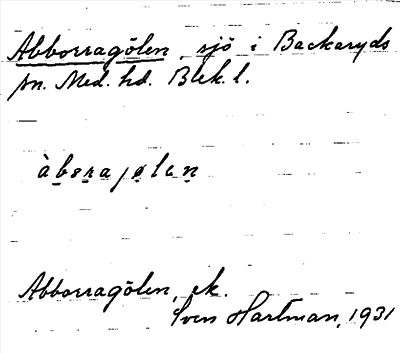 Abborragölen, sjö i Backaryds
sn. Med. hd. Blek. l.
Abborragölen, ek.
Sven Hartman, 1931